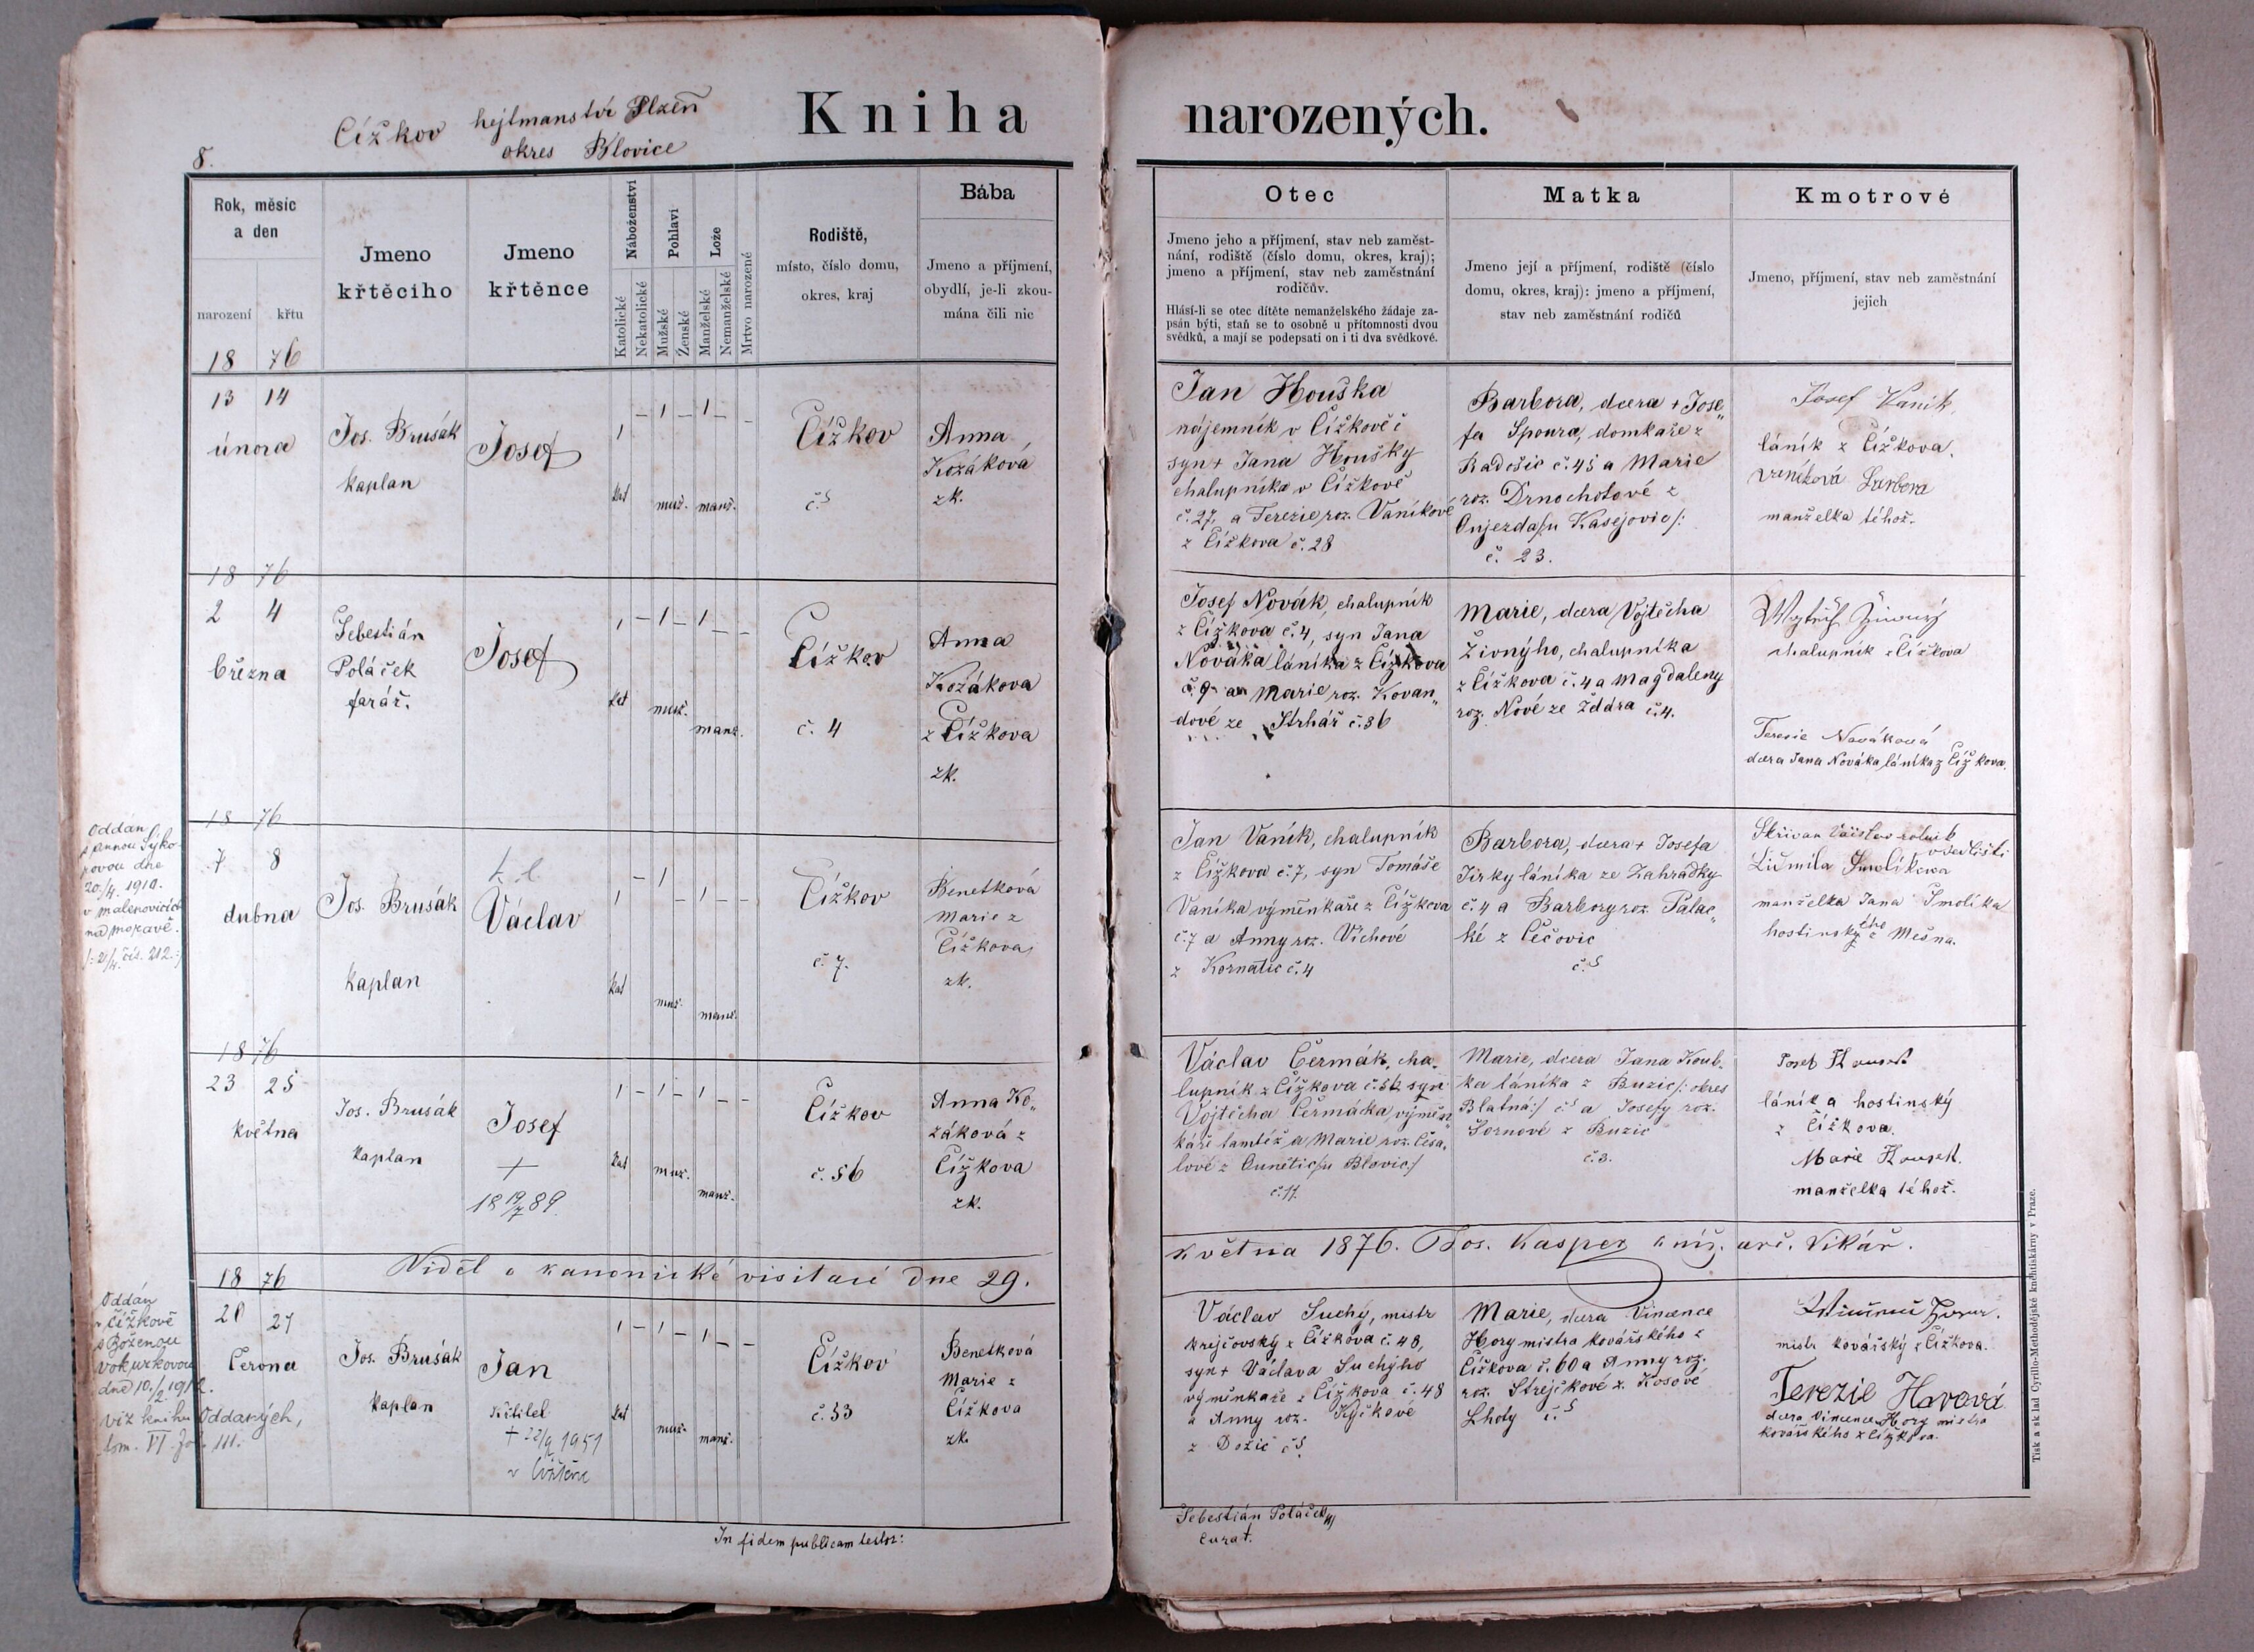 8.
Čížkov hejtmanství Plzeň
okres Blovice
Kniha narozených.
Rok, měsíc
a den
narození křtu
Jmeno
křtěcího
Jmeno
křtěnce
Náboženství
Katolické
Nekatolické
Pohlaví
Mužské
Ženské
Lože
Manželské
Nemanželské
Mrtvo narozené
Rodiště,
místo, číslo domu,
okres, kraj
Bába
Jmeno a příjmení,
obydlí, je-li zkou-
mána čili nic
Otec
Jmeno jeho a příjmení, stav neb zaměst-
nání, rodiště (číslo domu, okres, kraj);
jmeno a příjmení, stav neb zaměstnání
rodičův.
Hlásí-li se otec dítěte nemanželského žádaje za-
psán býti, staň se to osobně u přítomnosti dvou
svědků, a mají se podepsati on i ti dva svědkové.
Matka
Jmeno její a příjmení, rodiště (číslo
domu, okres, kraj): jmeno a příjmení,
stav neb zaměstnání rodičů
Kmotrové
Jmeno, příjmení, stav neb zaměstnání
jejich
18 76
13 14
února
Jos. Brusák
kaplan
Josef
kat
muž.
manž.
Čížkov
č. 5
Anna
Kozáková
zk.
Jan Houška
nájemník v Čížkově
syn + Jana Houšky
chalupníka v Čížkově
č. 27, a Terezie roz. Vaníkové
z Čížkova č. 28
Barbora, dcera + Jose„
fa Spoura, domkaře z
Radošic č. 45 a Marie
roz. Drnochotové z
Oujezda /:u Kasejovic/:
č. 23.
Josef Vaník,
láník z Čížkova.
Vaníková Barbora
manželka téhož.
18 76
2 4
března
Šebestián
Poláček
farář.
Josef
kat
muž.
manž.
Čížkov
č. 4
Anna
Kozákova
z Čížkova
zk.
Josef Novák, chalupník
z Čížkova č. 4, syn Jana
Nováka láníka z Čížkova
č. 9 a Marie roz. Kovan„
dové ze Strhář č. 36
Marie, dcera Vojtěcha
Živnýho, chalupníka
z Čížkova č. 4 a Magdaleny
roz. Nové ze Ždára č. 4.
chalupník z Čížkova
Teresie Nováková
dcera Jana Nováka láníka z Čížkova.
18 76
Oddán
s Annou Sýko-
rovou dne
20./4. 1910.
v Malenovicích
na Moravě.
/:21/4. čís. 212.:/
7 8
dubna
Jos. Brusák
kaplan
Václav
kat
muž.
manž.
Čížkov
č. 7.
Benetková
Marie z
Čížkova
zk.
Jan Vaník, chalupník
z Čížkova č. 7, syn Tomáše
Vaníka výměnkaře z Čížkova
č. 7 a Anny roz. Víchové
z Kornatic č. 4
Barbora, dcera + Josefa
Jirky láníka ze Zahrádky
č. 4 a Barbory roz. Palac„
ké z Čečovic
č. 5
Skřivan Václav rolník
v Sedlišti
Ludmila Smolíkova
manželka Jana Smolíka
hostinského z Mešna.
18 76
23 25
května
Jos. Brusák
kaplan
Josef
+
18 19/7 89.
kat
muž.
manž.
Čížkov
č. 56
Anna Ko„
záková z
Čížkova
zk.
Václav Čermák, cha„
lupník z Čížkova č. 56 syn
Vojtěcha Čermáka, výměn„
káře tamtéž a Marie roz. Česa„
lové z Ounětic /u Blovic/
č. 11.
Marie, dcera Jana Koub„
ka láníka z Buzic /: okres
Blatná:/ č. 5 a Josefy roz.
Šornové z Buzic
č. 3.
láník a hostinský
z Čížkova.
manželka téhož.
Viděl o kanonické visitaci dne 29. května 1876. Jos. Kasper kníž. arc. Vikář.
18 76
Oddán
v Čížkově
s Boženou
Vokurkovou
dne 10./2. 1912.
viz knihu Oddaných,
tom. VI. fol. 111.
20 21
Června
Jos. Brusák
kaplan
Jan
křtitel
+ 22/9 1951
kat
muž.
manž.
Čížkov
č. 53
Benetková
Marie z
Čížkova
zk.
Václav Suchý, mistr
krejčovský z Čížkova č. 48,
syn + Václava Suchýho
výměnkaře z Čížkova č. 48
a Anny roz. Kyčkové
z Dožic č. 5
Marie, dcera Vincence
Hory mistra kovářského z
Čížkova č. 60 a Anny roz.
roz. Strejčkové z Kosové
Lhoty č. 5
mistr kovářský z Čížkova.
Terezie Horová
dcera Vincence Hory mistra
kovářského z Čížkova.
In fidem publicam testor:
Šebestián Poláček
curat.
Tisk a sklad Cyrillo-Methodějské knihtiskárny v Praze.